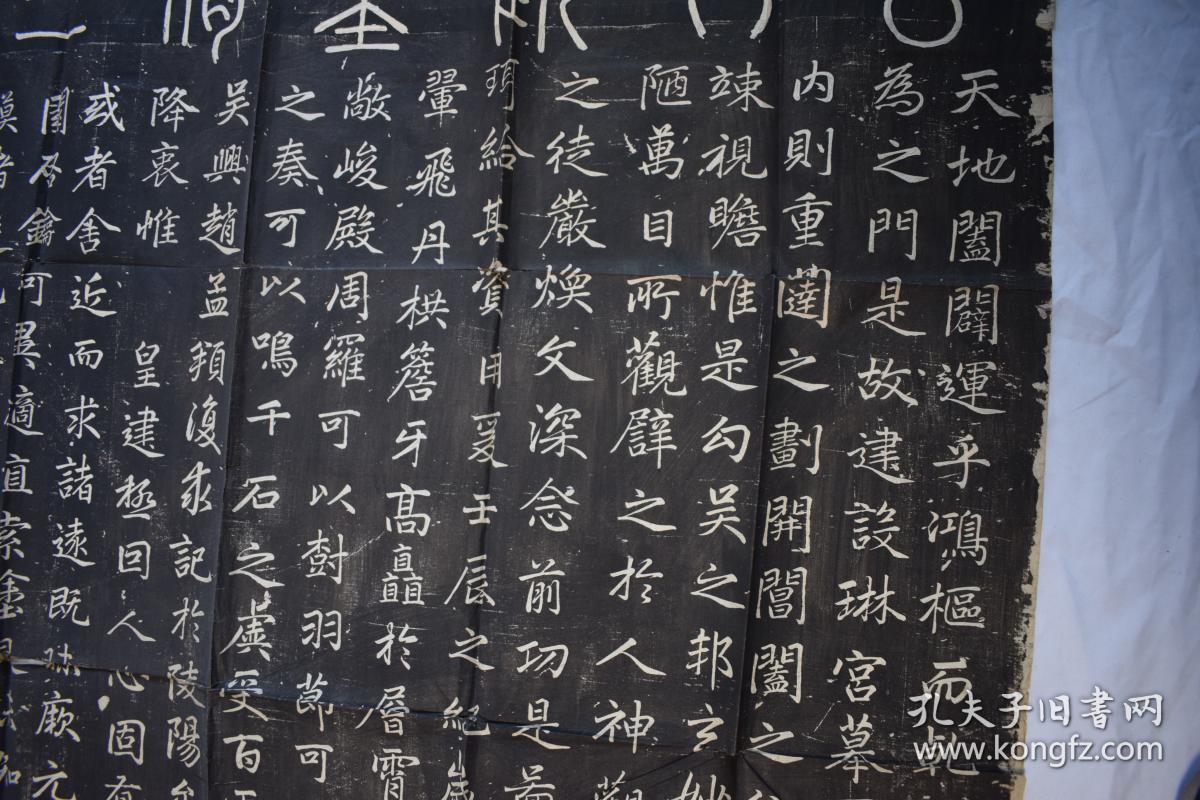 天地闔闢運乎鴻樞而乾
為之門是故建設琳宮摹
内則重闥之劃開閶闔之
竦視瞻惟是勾吴之邦玄妙
陋萬目所觀辟之於人神觀
之徒嚴煥文深念前功是
珂給其資用爰壬辰之絕歲
翬飛丹栱簷牙高矗於層霄
敞峻殿周羅可以樹羽節可
之奏可以鳴千石之虡受百
吴興趙孟頫復求記於陵陽牟
降衷惟皇建極回人心固有
或者舍近而求諸遠既昧厥元
鑰可異適直索塗
孔夫子旧书网
www.kongfz.com